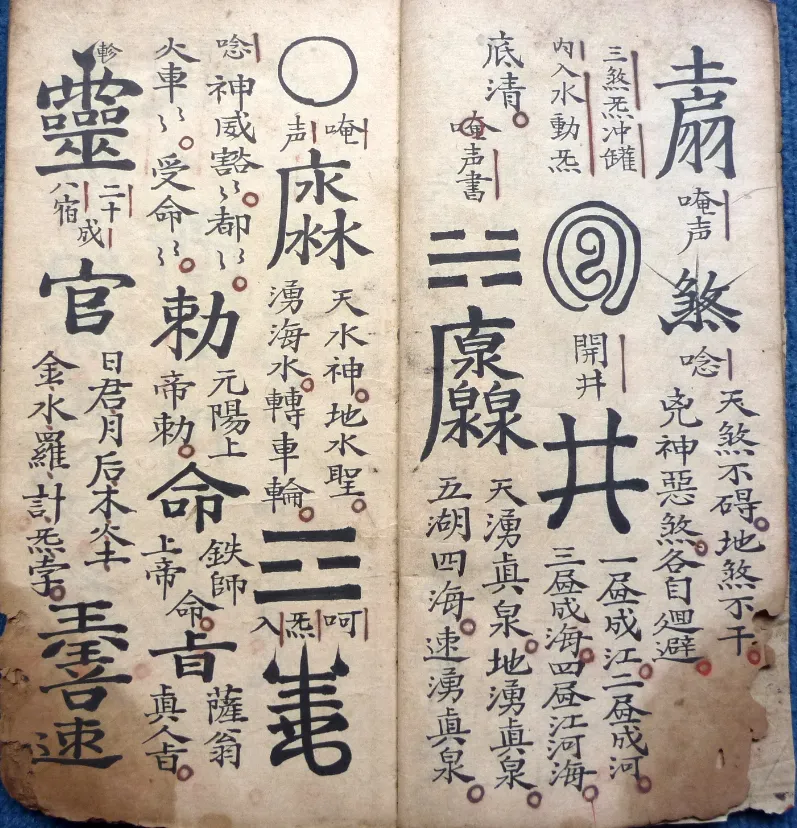 煞
唵声
唸
天煞不碍。地煞不干
兇神惡煞各自迴避。
三煞炁冲罐
内入水動炁
開井
井
一昼成江。二昼成河。
三昼成海。四昼江河海。
底清。
唵声書
天湧眞泉。地湧眞泉。
五湖四海。速湧眞泉。
唵
声
天水神。地水聖。
湧海水。轉車輪。
呵
炁
入
唸
神威豁〻。都〻。
火車〻。受命〻。
勅
元陽上
帝勅。
命
鉄師
上帝命。
㫖
薩翁
眞人㫖。
軫
靈
二十
八宿
成
官
日君月后木火土
金水羅計炁孛。
善
速